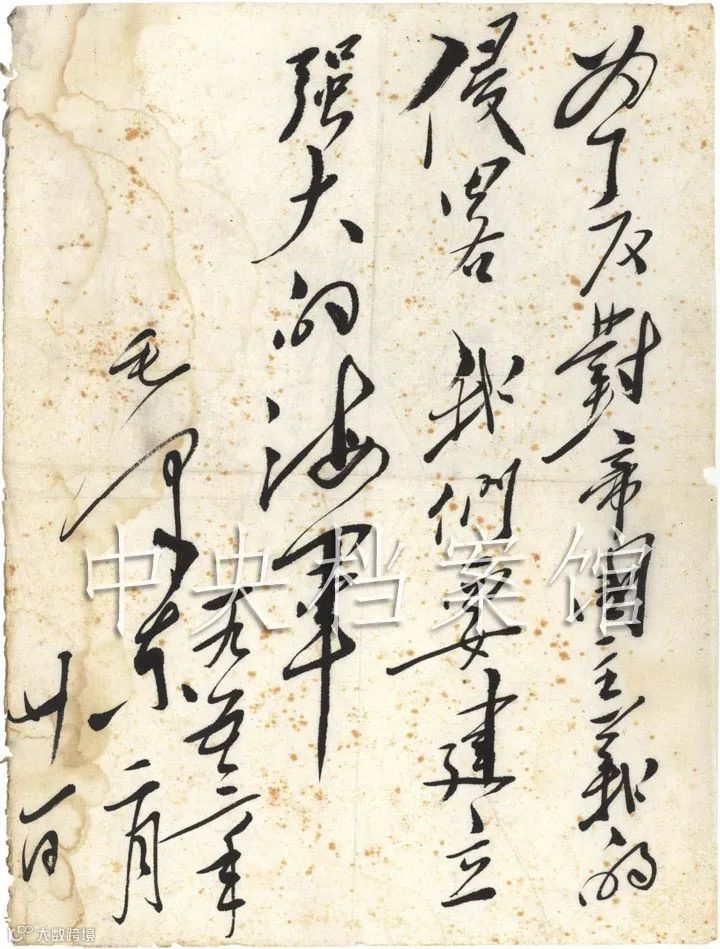 为了反對帝國主義的
侵畧我們要建立
强大的海軍
毛泽东
一九五三年
二月
廿一日
中央档案馆
大数跨境